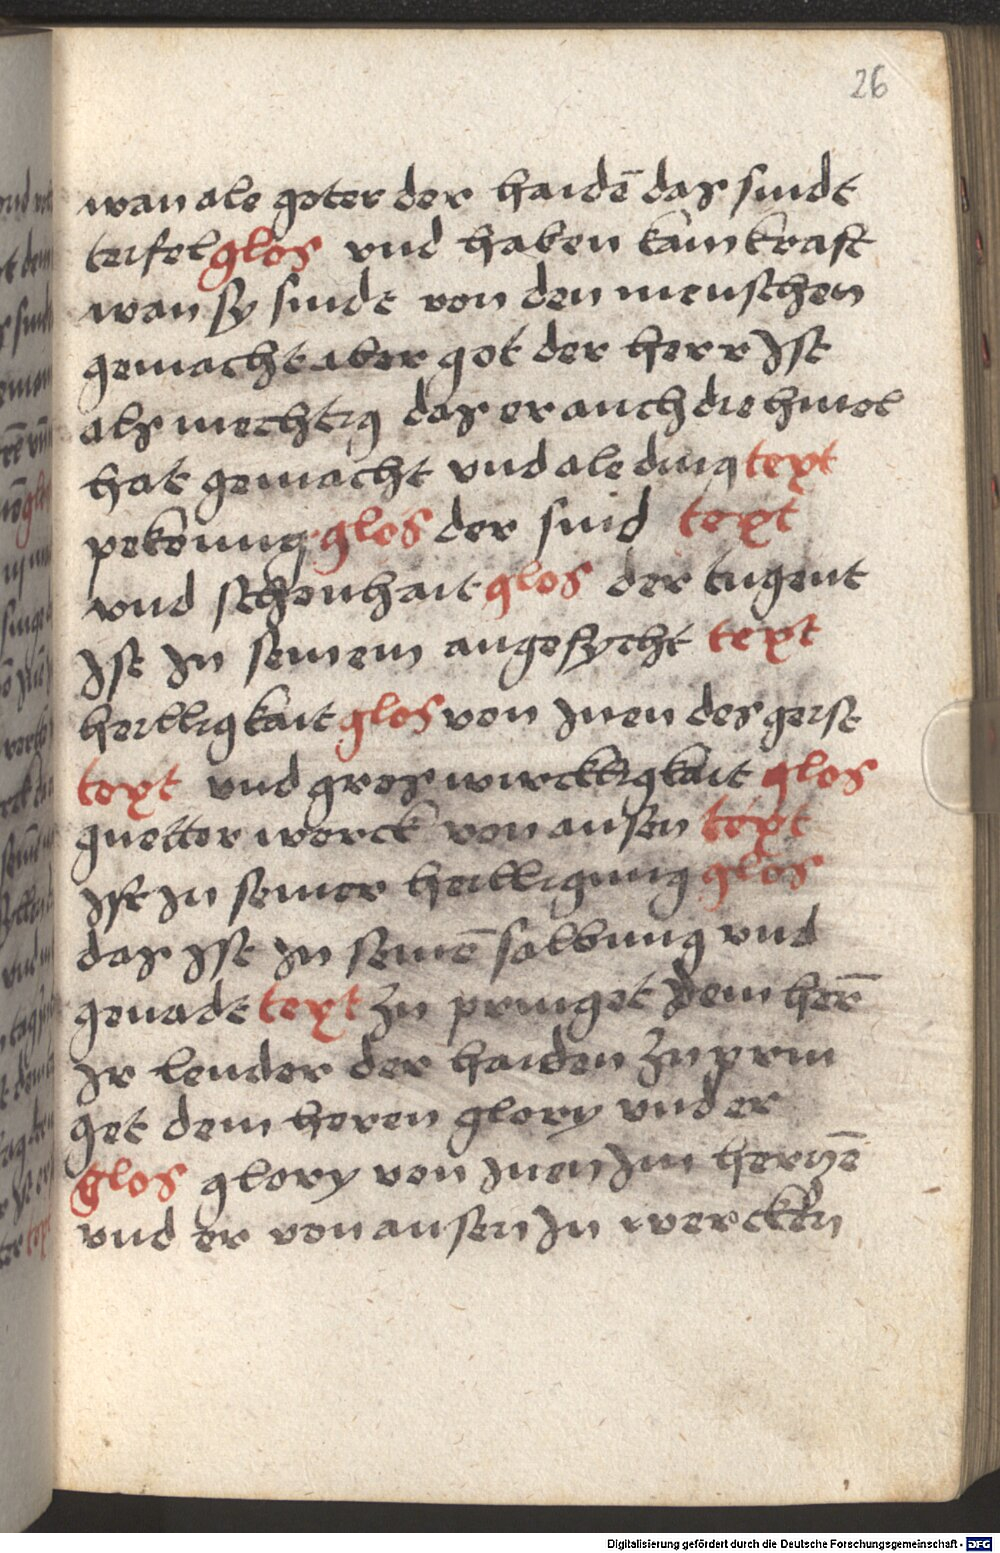 26
wan ale goter der haidē das sindt
teifel glos vnd haben kain kraft
wan sy sindt von den menschen
gemacht aber got der herr Ist
als mechtig das er auch die hmel
hat gemacht vnd ale ding text
pekenung glos der sind text
vnd schonhait glos der tugent
Ist In seinem angesycht text
heilligkait glos von Inen des geist
text vnd gros wircktigkait glos
guetter werck von ausen text
Ist In seiner heilligung glos
das Ist In seinē salbung vnd
genadt text zu pringet dem herr̄
Ir lender der haiden zu prin
get dem heren glory vnd er
glos glory von Inen Im herczē
vnd er von ausen In wercken
Digitalisierung gefördert durch die Deutsche Forschungsgemeinschaft - DFG